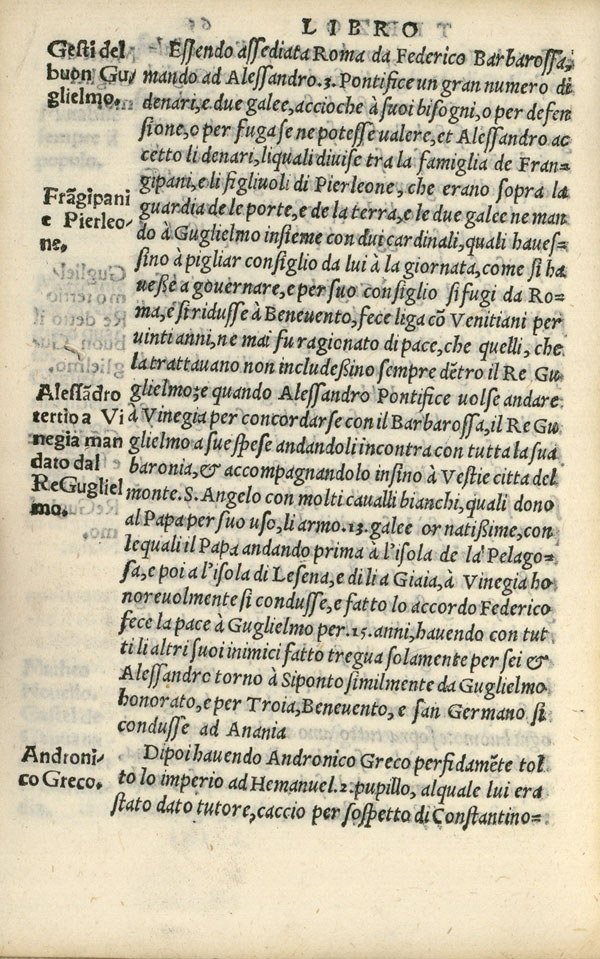 LIBRO
Gesti del
buon Gu-
glielmo.
Essendo assediata Roma da Federico Barbarossa,
mando ad Alessandro.3. Pontifice un gran numero di
denari, e due galee, accioche à suoi bisogni, o per defen
sione, o per fuga se ne potesse valere, et Alessandro ac
cetto li denari, liquali divise tra la famiglia de Fran-
gipani, e li figliuoli di Pierleone, che erano sopra la
Frãgipani
e Pierleo-
ne.
guardia de le porte, e de la terra, e le due galee ne man
do à Guglielmo insieme con dui cardinali, quali haves-
sino à pigliar consiglio da lui à la giornata, come si ha
veße à governare, e per suo consiglio si fugi da Ro-
ma, e si ridusse à Benevento, fece liga cõ Venitiani per
vinti anni, ne mai fu ragionato di pace, che quelli, che
la trattavano non includeßino sempre dẽtro il Re Gu
Alessãdro
tertio a Vi
negia man
dato dal
Re Gugliel
mo.
glielmo; e quando Alessandro Pontifice volse andare
à Vinegia per concordarse con il Barbarossa, il Re Gu
glielmo a sue spese andandoli incontra con tutta la sua
baronia, & accompagnandolo insino à Vestie citta del
monte. S. Angelo con molti cavalli bianchi, quali dono
al Papa per suo uso, li armo.13. galee ornatißime, con
le quali il Papa andando prima à l'isola de la Pelago-
sa, e poi a l'isola di Lesena, e di li a Giaia, à Vinegia ho
norevolmente si condusse, e fatto lo accordo Federico
fece la pace à Guglielmo per.15. anni, havendo con tut
ti li altri suoi inimici fatto tregua solamente per sei &
Alessandro torno à Siponto similmente da Guglielmo
honorato, e per Troia, Benevento, e san Germano si
condusse ad Anania
Androni-
co Greco.
Dipoi havendo Andronico Greco perfidamẽte tol
to lo imperio ad Hemanuel.2. pupillo, alquale lui era
stato dato tutore, caccio per sospetto di Constantino-